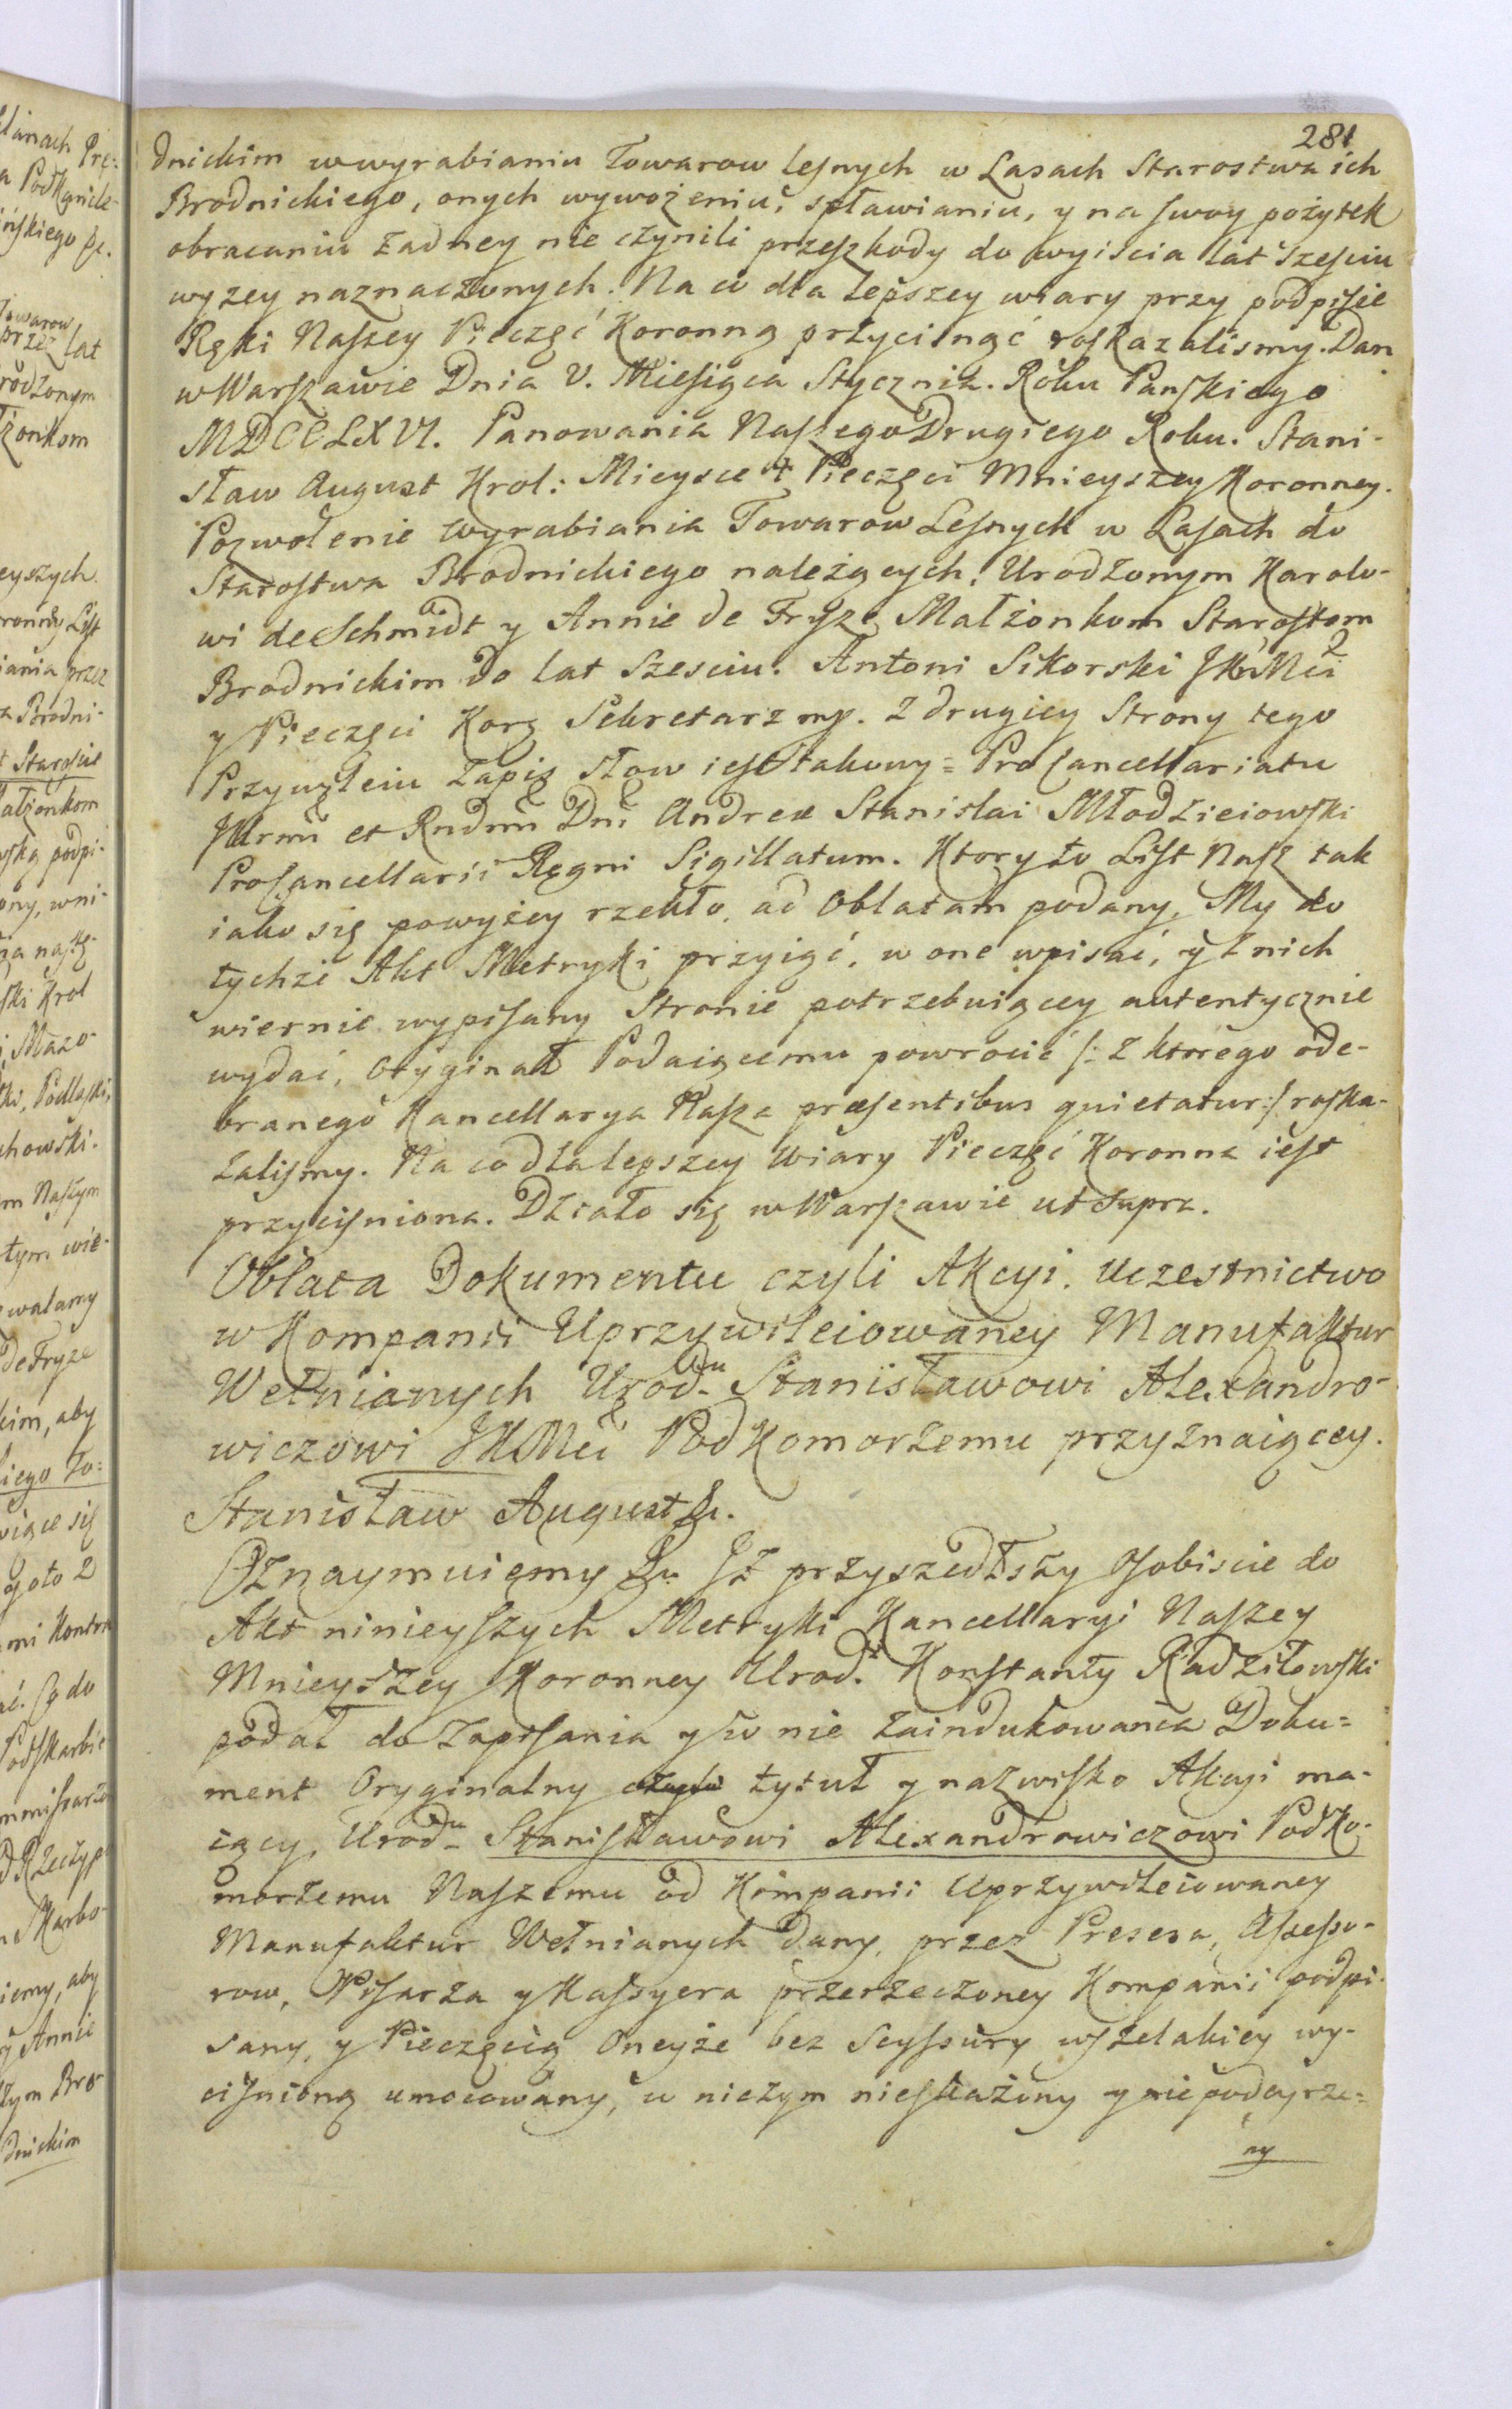 281
dnickim w wyrabianiu Towarow leſnych w Lasach Starostwa ich
Brodnickiego, onych wywożeniu, spławianiu, y na ſwoy pożytek
obracaniu żadney nie czynili przeſzkody do wyiscia lat szeſciu
wyzey naznaczonych. Na co dla lepszey wiary przy podpiſie
Ręki Naſzey Pieczęć Koronną przycisnąć roſkazalismy. Dan
w Warſzawie Dnia V. Mieſiąca Stycznia. Roku Panſkiego
MDCCLXVI. Panowania Naſzego Drugiego Roku. Stani-
sław August Krol: Mieysce + Pieczęci Mnieyszey Koronney.
Pozwolenie wyrabiania Towarow Leſnych w Laſach do
Staroſtwa Brodnickiego należących, Urodzonym Karolo-
wi de Schmidt y Annie de Fryze Małżonkom Staroſtom
Brodnickim do lat szesciu. Antoni Sikorski JKMci
y Pieczęci Kor: Sekretarz mp. Z drugiey strony tego
Przywileiu Zapis słow ieſt takowy = Procancellariatu
Illrmi et Rndmi Dni Andreæ Stanislai Młodzieiowſki
Procancellarii Regni Sigillatum. Ktory to Liſt Naſz tak
iako się powyżey rzekło, ad Oblatam podany, My do
tychże Akt Metryki przyiąć, w one wpisać, y z nich
wiernie wypiſany Stronie potrzebuiącey autentycznie
wydać, Oryginał Podaiącemu powrocić /: z ktorego ode-
branego Kancellarya Naſza præſentibus quietatur :/ roſka-
zaliſmy. Na co dla lepszey wiary Pieczęć Koronna ieſt
przyciſniona. Działo się w Warſzawie ut supra.
Oblata Dokumentu czyli Akcyi. Uczestnictwo
w Kompanii Uprzywileiowaney Manufaktur
Wełnianych Urodmu Stanisławowi Alexandro-
wiczowi JKMci Podkomorzemu przyznaiącey.
Stanisław August &.
Oznaymuiemy &. Iż przyszedłszy Oſobiscie do
Akt ninieyſzych Metryki Kancellaryi Naſzey
Mnieyszey Koronney Urod: Konſtanty Radziłowſki
podał do Zapiſania y w nie zaindukowania Doku=
ment Oryginalny tytuł y nazwiſko Akcyi ma-
iący, Urodmu Staniſławowi Alexandrowiczowi Podko-
morzemu Naſzemu od Kompanii Uprzywileiowaney
Manufaktur Wełnianych dany, przez Presesa, Aſseſso-
row, Piſarza y Kaſsyera przerzeczoney Kompanii podpi-
sany, y Pieczęcią Oneyże bez Scyſsury wſzelakiey wy-
ciſnioną umocowany, w niczym nieſkażony y nie podeyrze=
ny